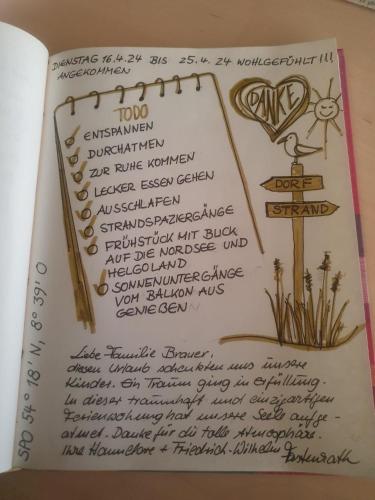 DIENSTAG 16.4.24 BIS 25.4.24 WOHLGEFÜHLT!!!
ANGEKOMMEN
TODO
ENTSPANNEN
DURCHATMEN
ZUR RUHE KOMMEN
LECKER ESSEN GEHEN
AUSSCHLAFEN
STRANDSPAZIERGÄNGE
FRÜHSTÜCK MIT BLICK
AUF DIE NORDSEE UND
HELGOLAND
SONNENUNTERGÄNGE
VOM BALKON AUS
GENIEßEN
DANKE
DORF
STRAND
SPO 54° 18' N, 8° 39' O
Liebe Familie Brauer,
diesen Urlaub schenkten uns unsere
Kinder. Ein Traum ging in Erfüllung.
In dieser traumhaft und einzigartigen
Ferienwohnung hat unsere Seele aufge-
atmet. Danke für die tolle Atmosphäre.
Ihre Hannelore + Friedrich-Wilhelm